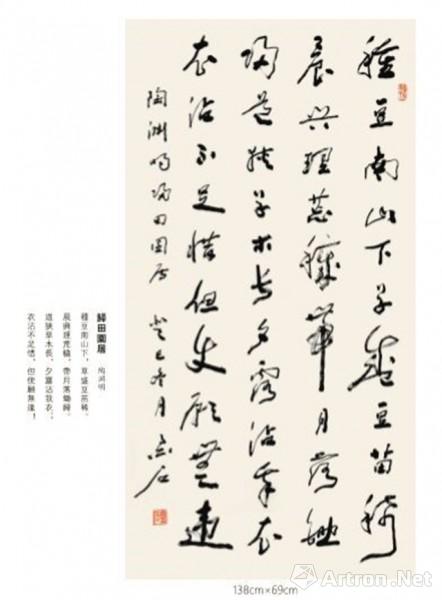 種豆南山下草盛豆苗稀
晨兴理荒穢帶月荷鋤
歸道狹草木長夕露沾我衣
衣沾不足惜但使願無違
陶淵明歸田園居 癸巳冬月 石
歸田園居 陶淵明
種豆南山下，草盛豆苗稀。
晨興理荒穢，帶月荷鋤歸。
道狹草木長，夕露沾我衣。
衣沾不足惜，但使願無違！
138cm×69cm
Artron.Net